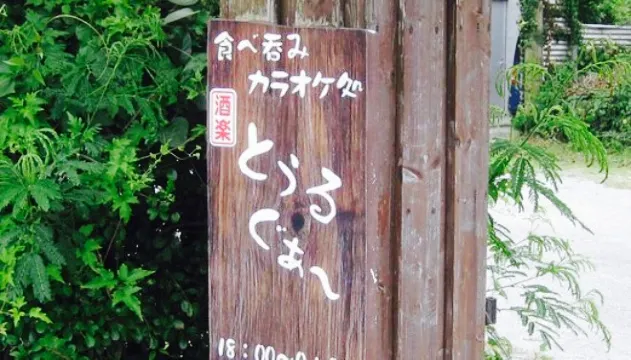 食べ呑み
カラオケ処
酒楽
とぅる
ぐぁ〜
18:00〜